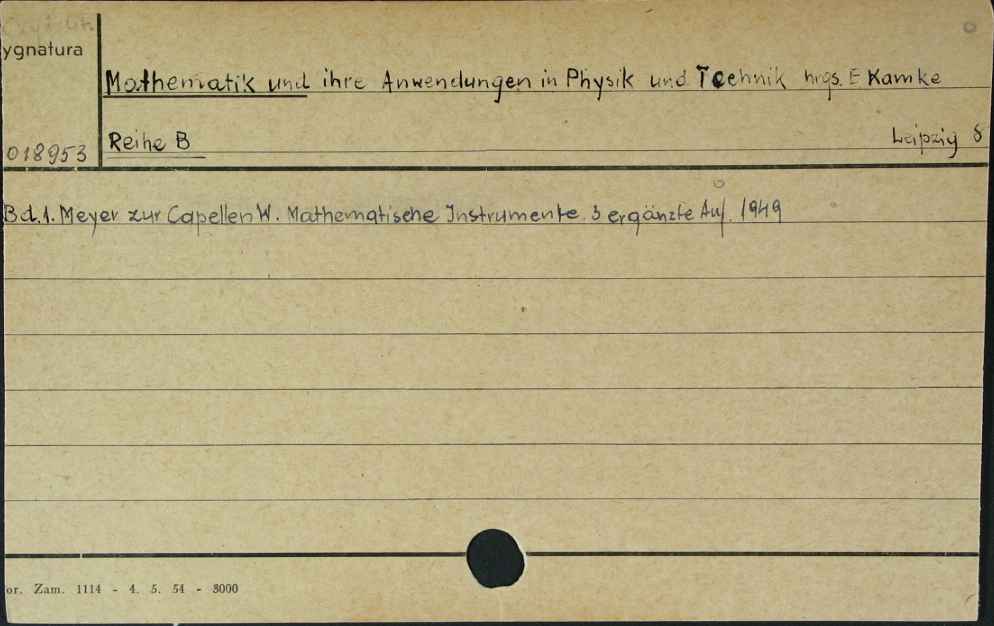 ygnatura
Mathematik und ihre Anwendungen in Physik und Technik hrgs. E Kamke
018953
Reihe B
Leipzig 8
Bd.1. Meyer zur Capellen W. Mathematische Instrumente. 3 ergänzte Auf. 1949
or. Zam. 1114 - 4. 5. 54 - 3000